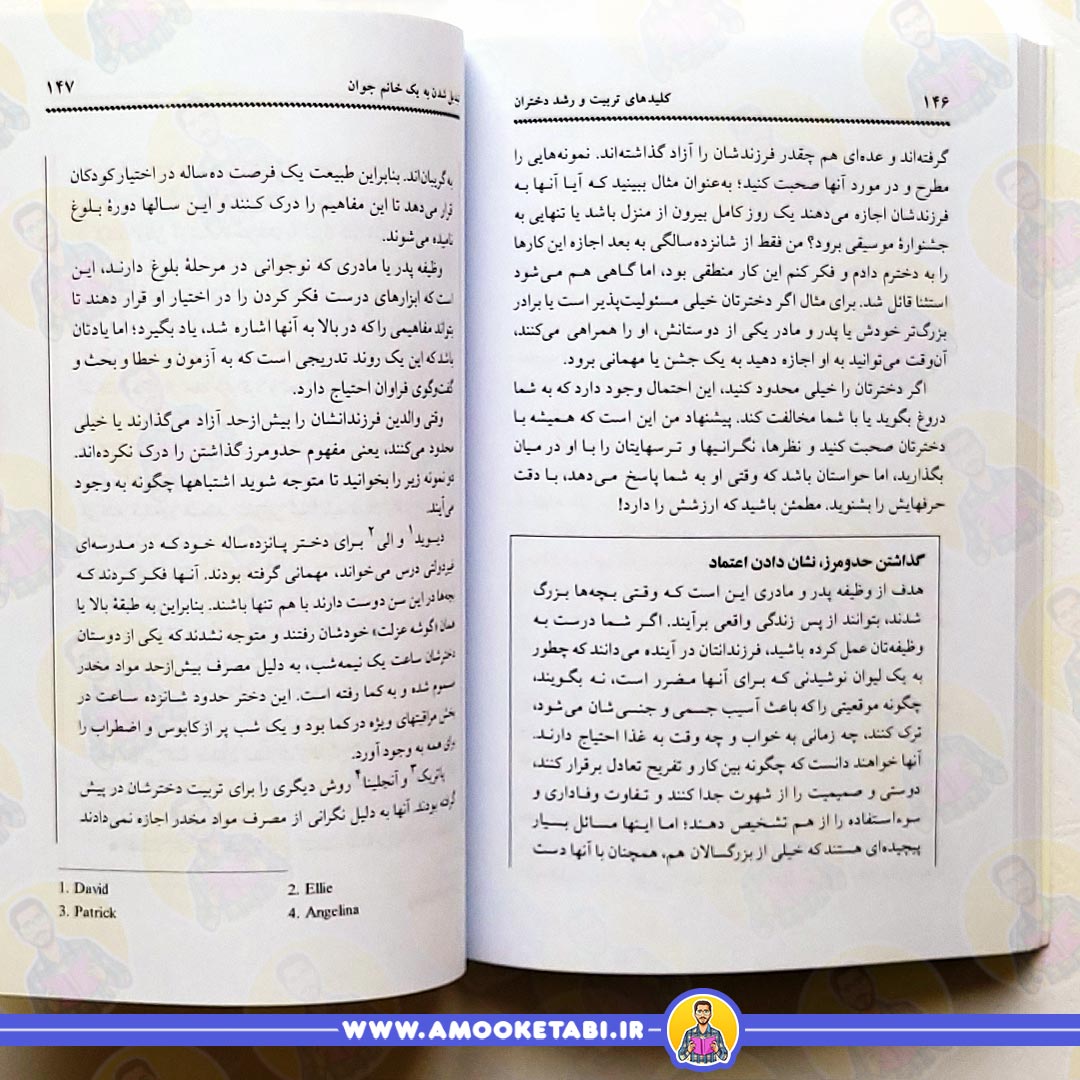 ۱۴۶
کلیدهای تربیت و رشد دختران
گرفته‌اند و عده‌ای هم چقدر فرزندشان را آزاد گذاشته‌اند. نمونه‌هایی را
مطرح و در مورد آنها صحبت کنید؛ به‌عنوان مثال ببینید که آیا آنها به
فرزندشان اجازه می‌دهند یک روز کامل بیرون از منزل باشد یا تنهایی به
جشنوارهٔ موسیقی برود؟ من فقط از شانزده‌سالگی به بعد اجازه این کارها
را به دخترم دادم و فکر کنم این کار منطقی بود، اما گاهی هم می‌شود
استثنا قائل شد. برای مثال اگر دخترتان خیلی مسئولیت‌پذیر است یا برادر
بزرگ‌تر خودش یا پدر و مادر یکی از دوستانش، او را همراهی می‌کنند،
آن‌وقت می‌توانید به او اجازه دهید به یک جشن یا مهمانی برود.
اگر دخترتان را خیلی محدود کنید، این احتمال وجود دارد که به شما
دروغ بگوید یا با شما مخالفت کند. پیشنهاد من این است که همیشه با
دخترتان صحبت کنید و نظرها، نگرانیها و ترسهایتان را با او در میان
بگذارید، اما حواستان باشد که وقتی او به شما پاسخ می‌دهد، با دقت
حرفهایش را بشنوید. مطمئن باشید که ارزشش را دارد!
گذاشتن حدومرز، نشان دادن اعتماد
هدف از وظیفه پدر و مادری این است که وقتی بچه‌ها بزرگ
شدند، بتوانند از پس زندگی واقعی برآیند. اگر شما درست به
وظیفه‌تان عمل کرده باشید، فرزندانتان در آینده می‌دانند که چطور
به یک لیوان نوشیدنی که برای آنها مضرر است، نه بگویند،
چگونه موقعیتی را که باعث آسیب جسمی و جنسی‌شان می‌شود،
ترک کنند، چه زمانی به خواب و چه وقت به غذا احتیاج دارند.
آنها خواهند دانست که چگونه بین کار و تفریح تعادل برقرار کنند،
دوستی و صمیمیت را از شهوت جدا کنند و تفاوت وفاداری و
سوءاستفاده را از هم تشخیص دهند؛ اما اینها مسائل بسیار
پیچیده‌ای هستند که خیلی از بزرگسالان هم، همچنان با آنها دست
تبدیل شدن به یک خانم جوان
۱۴۷
به گریبان‌اند. بنابراین طبیعت یک فرصت ده‌ساله در اختیار کودکان
قرار می‌دهد تا این مفاهیم را درک کنند و این سالها دورهٔ بلوغ
نامیده می‌شوند.
وظیفه پدر یا مادری که نوجوانی در مرحلهٔ بلوغ دارند، این
است که ابزارهای درست فکر کردن را در اختیار او قرار دهند تا
بتواند مفاهیمی را که در بالا به آنها اشاره شد، یاد بگیرد؛ اما یادتان
باشد که این یک روند تدریجی است که به آزمون و خطا و بحث و
گفت‌وگوی فراوان احتیاج دارد.
وقتی والدین فرزندانشان را بیش‌ازحد آزاد می‌گذارند یا خیلی
محدود می‌کنند، یعنی مفهوم حدومرز گذاشتن را درک نکرده‌اند.
دو نمونه زیر را بخوانید تا متوجه شوید اشتباهها چگونه به وجود
می‌آیند.
دیوید۱ و الی۲ برای دختر پانزده‌ساله خود که در مدرسه‌ای
غیردولتی درس می‌خواند، مهمانی گرفته بودند. آنها فکر کردند که
بچه‌ها در این سن دوست دارند با هم تنها باشند. بنابراین به طبقهٔ بالا یا
همان «گوشه عزلت» خودشان رفتند و متوجه نشدند که یکی از دوستان
دخترشان ساعت یک نیمه‌شب، به دلیل مصرف بیش‌ازحد مواد مخدر
مسموم شده و به کما رفته است. این دختر حدود شانزده ساعت در
بخش مراقبتهای ویژه در کما بود و یک شب پر از کابوس و اضطراب را
برای همه به وجود آورد.
پاتریک۳ و آنجلینا۴ روش دیگری را برای تربیت دخترشان در پیش
گرفته بودند. آنها به دلیل نگرانی از مصرف مواد مخدر اجازه نمی‌دادند
1. David
2. Ellie
3. Patrick
4. Angelina
WWW.AMOOKETABI.IR